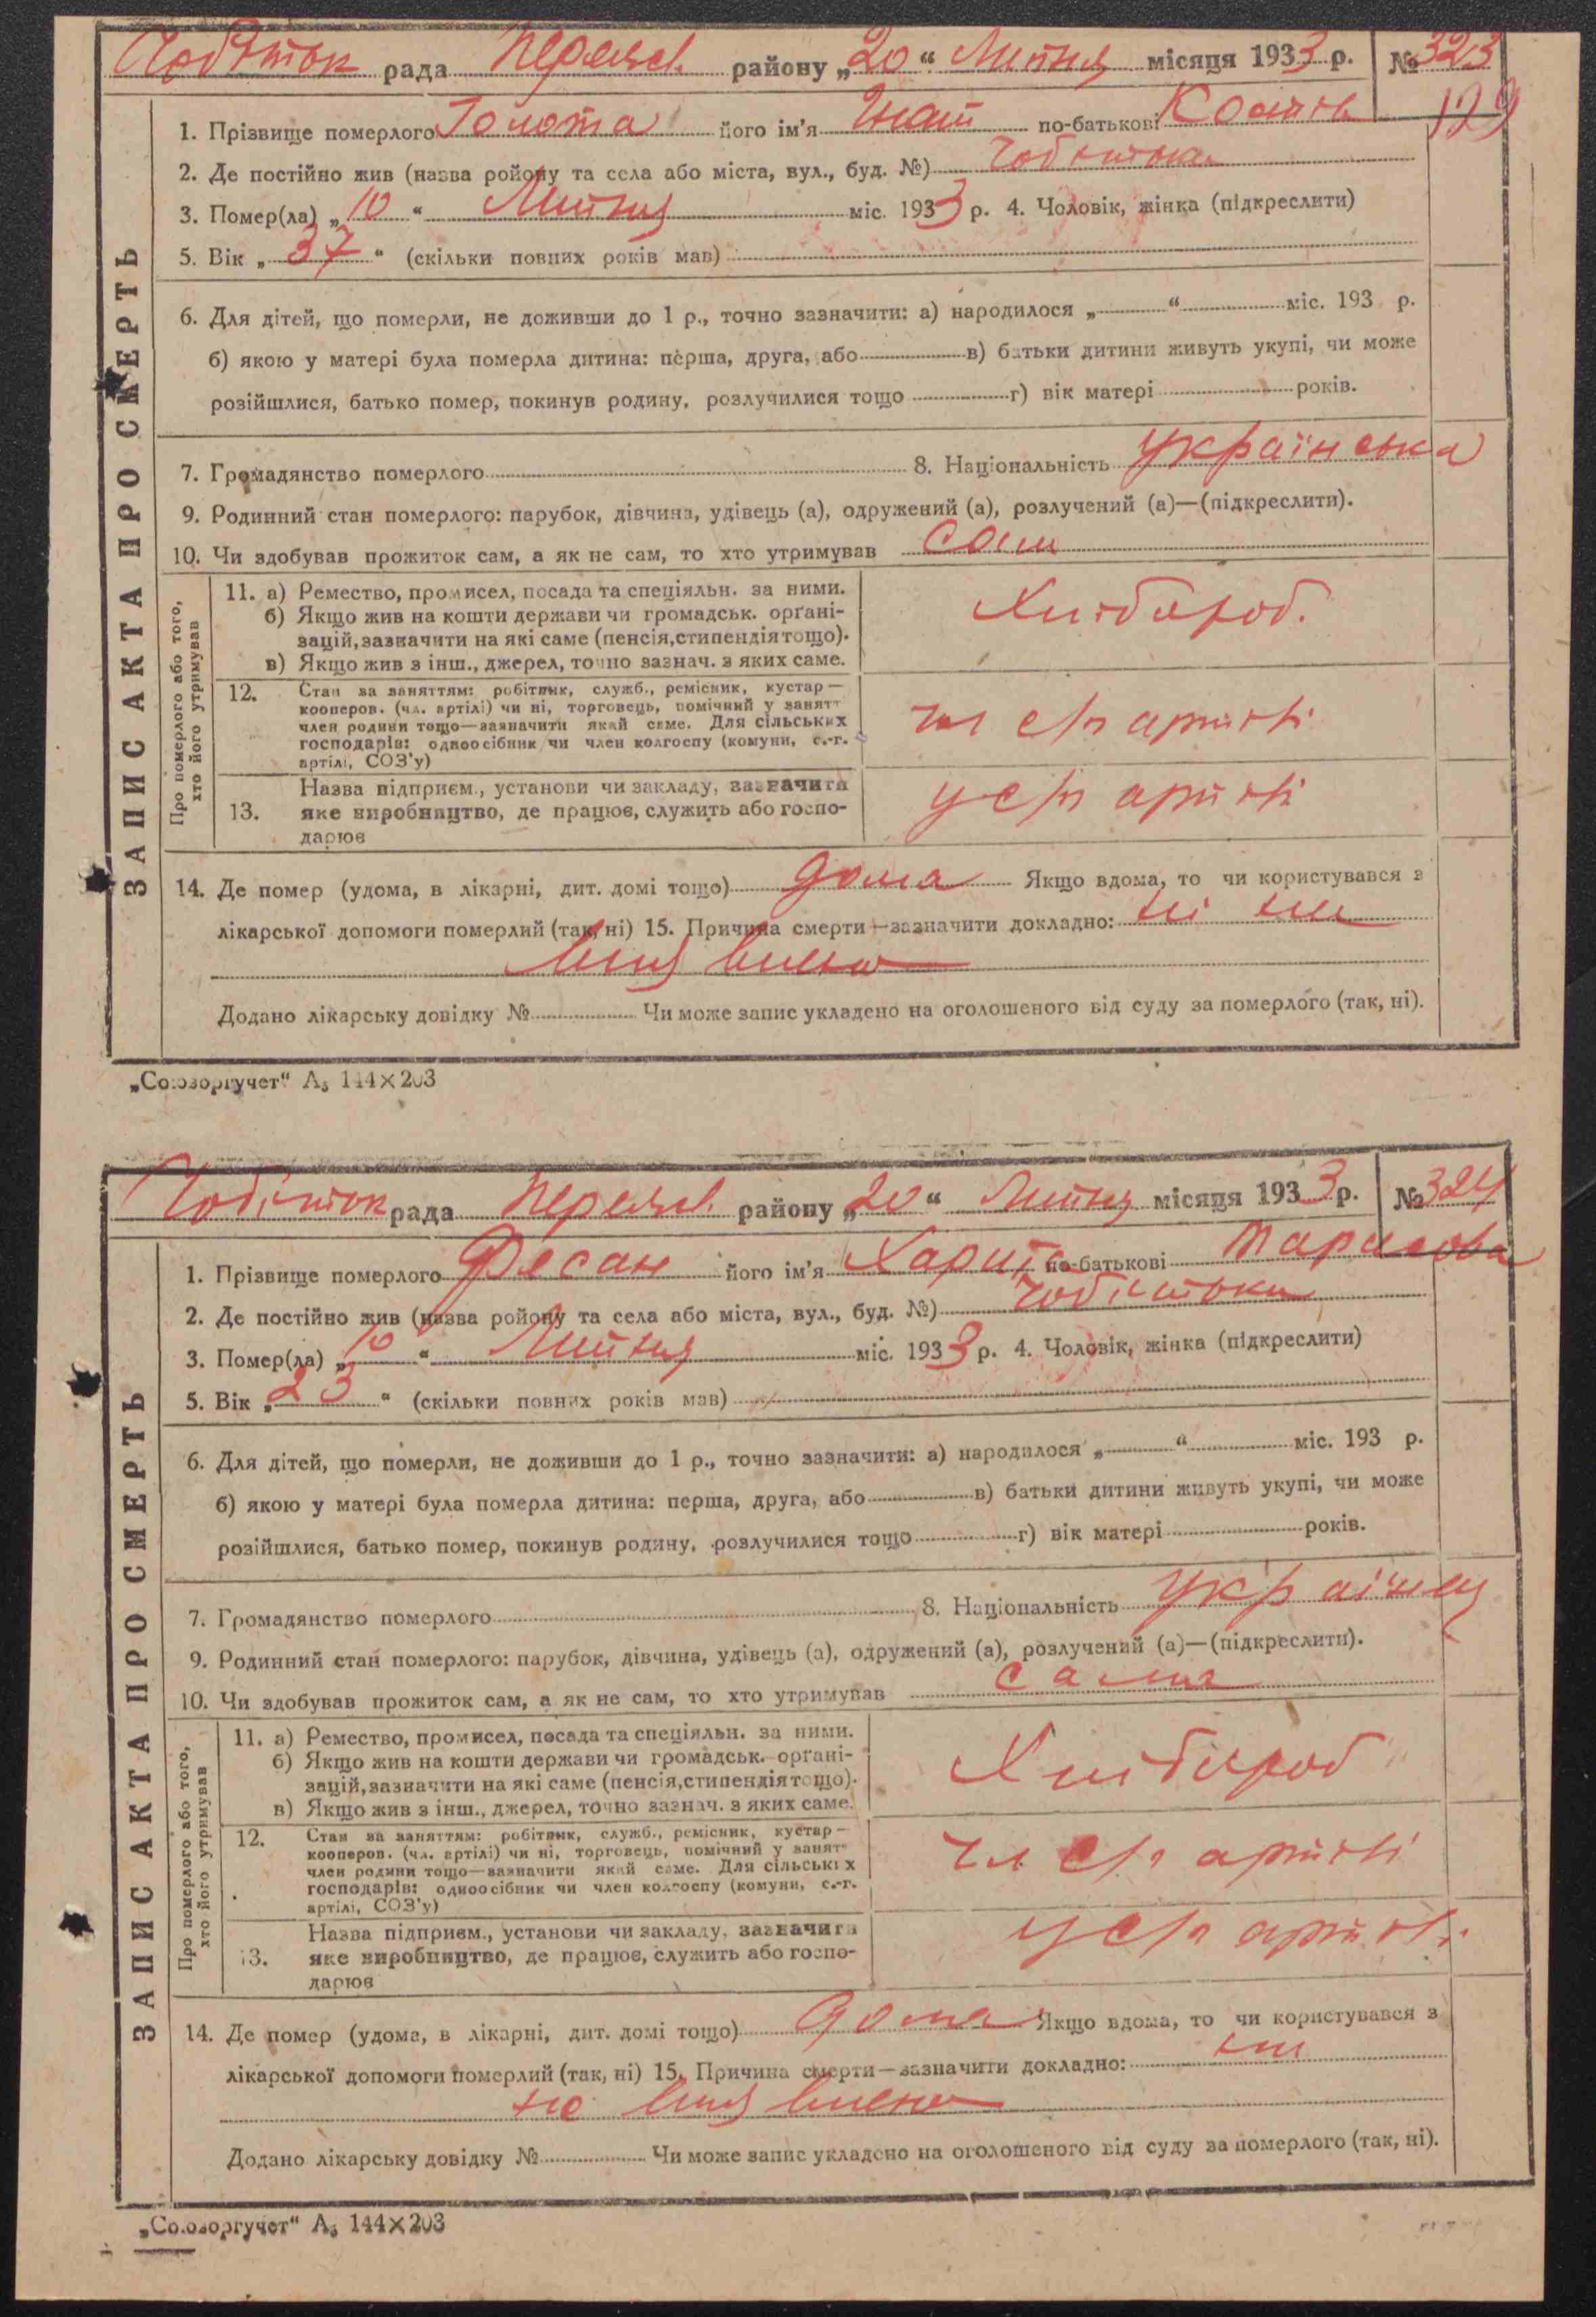 Чобітьок рада Переясл. району „20“ Липня місяця 1933 р. № 323
129
1. Прізвище померлого Голота його ім'я Гнат по-батькові Костів
2. Де постійно жив (назва ройону та села або міста, вул., буд. №) Чобітьки
3. Помер(ла) „10“ Липня міс. 1933 р. 4. Чоловік, жінка (підкреслити)
5. Вік „37“ (скільки повних років мав)
6. Для дітей, що померли, не доживши до 1 р., точно зазначити: а) народилося „ “ міс. 193 р.
б) якою у матері була померла дитина: перша, друга, або в) батьки дитини живуть укупі, чи може
розійшлися, батько помер, покинув родину, розлучилися тощо г) вік матері років.
7. Громадянство померлого 8. Національність українська
9. Родинний стан померлого: парубок, дівчина, удівець (а), одружений (а), розлучений (а)—(підкреслити).
10. Чи здобував прожиток сам, а як не сам, то хто утримував сам
ЗАПИС АКТА ПРО СМЕРТЬ
Про померлого або того, хто його утримував
11. а) Ремество, промисел, посада та спеціяльн. за ними.
б) Якщо жив на кошти держави чи громадськ. орґані-
зацій, зазначити на які саме (пенсія, стипендія тощо).
в) Якщо жив з інш., джерел, точно зазнач. з яких саме.
Хлібороб.
12. Стан за заняттям: робітник, служб., ремісник, кустар—
кооперов. (чл. артілі) чи ні, торговець, помічний у занятт
член родини тощо—зазначити який саме. Для сільських
господарів: одноосібник чи член колгоспу (комуни, с.-г.
артілі, СОЗ'у)
чл с/г артілі
13. Назва підприєм., установи чи закладу, зазначити
яке виробництво, де працює, служить або госпо-
дарює
у с/г артілі
14. Де помер (удома, в лікарні, дит. домі тощо) дома Якщо вдома, то чи користувався з
лікарської допомоги померлий (так, ні) 15. Причина смерти—зазначити докладно: ні
Додано лікарську довідку № Чи може запис укладено на оголошеного від суду за померлого (так, ні).
„Союзоргучет“ А₅ 144×203
Чобітьок рада Переясл. району „20“ Липня місяця 1933 р. № 324
1. Прізвище померлого Фесан його ім'я Харит по-батькові Тарасова
2. Де постійно жив (назва ройону та села або міста, вул., буд. №) Чобітьки
3. Помер(ла) „10“ Липня міс. 1933 р. 4. Чоловік, жінка (підкреслити)
5. Вік „23“ (скільки повних років мав)
6. Для дітей, що померли, не доживши до 1 р., точно зазначити: а) народилося „ “ міс. 193 р.
б) якою у матері була померла дитина: перша, друга, або в) батьки дитини живуть укупі, чи може
розійшлися, батько помер, покинув родину, розлучилися тощо г) вік матері років.
7. Громадянство померлого 8. Національність
9. Родинний стан померлого: парубок, дівчина, удівець (а), одружений (а), розлучений (а)—(підкреслити).
10. Чи здобував прожиток сам, а як не сам, то хто утримував сама
ЗАПИС АКТА ПРО СМЕРТЬ
Про померлого або того, хто його утримував
11. а) Ремество, промисел, посада та спеціяльн. за ними.
б) Якщо жив на кошти держави чи громадськ. орґані-
зацій, зазначити на які саме (пенсія, стипендія тощо).
в) Якщо жив з інш., джерел, точно зазнач. з яких саме.
Хлібороб
12. Стан за заняттям: робітник, служб., ремісник, кустар—
кооперов. (чл. артілі) чи ні, торговець, помічний у занятт
член родини тощо—зазначити який саме. Для сільських
господарів: одноосібник чи член колгоспу (комуни, с.-г.
артілі, СОЗ'у)
чл с/г артілі
13. Назва підприєм., установи чи закладу, зазначити
яке виробництво, де працює, служить або госпо-
дарює
у с/г артілі
14. Де помер (удома, в лікарні, дит. домі тощо) дома Якщо вдома, то чи користувався з
лікарської допомоги померлий (так, ні) 15. Причина смерти—зазначити докладно:
Додано лікарську довідку № Чи може запис укладено на оголошеного від суду за померлого (так, ні).
„Союзоргучет“ А₅ 144×203